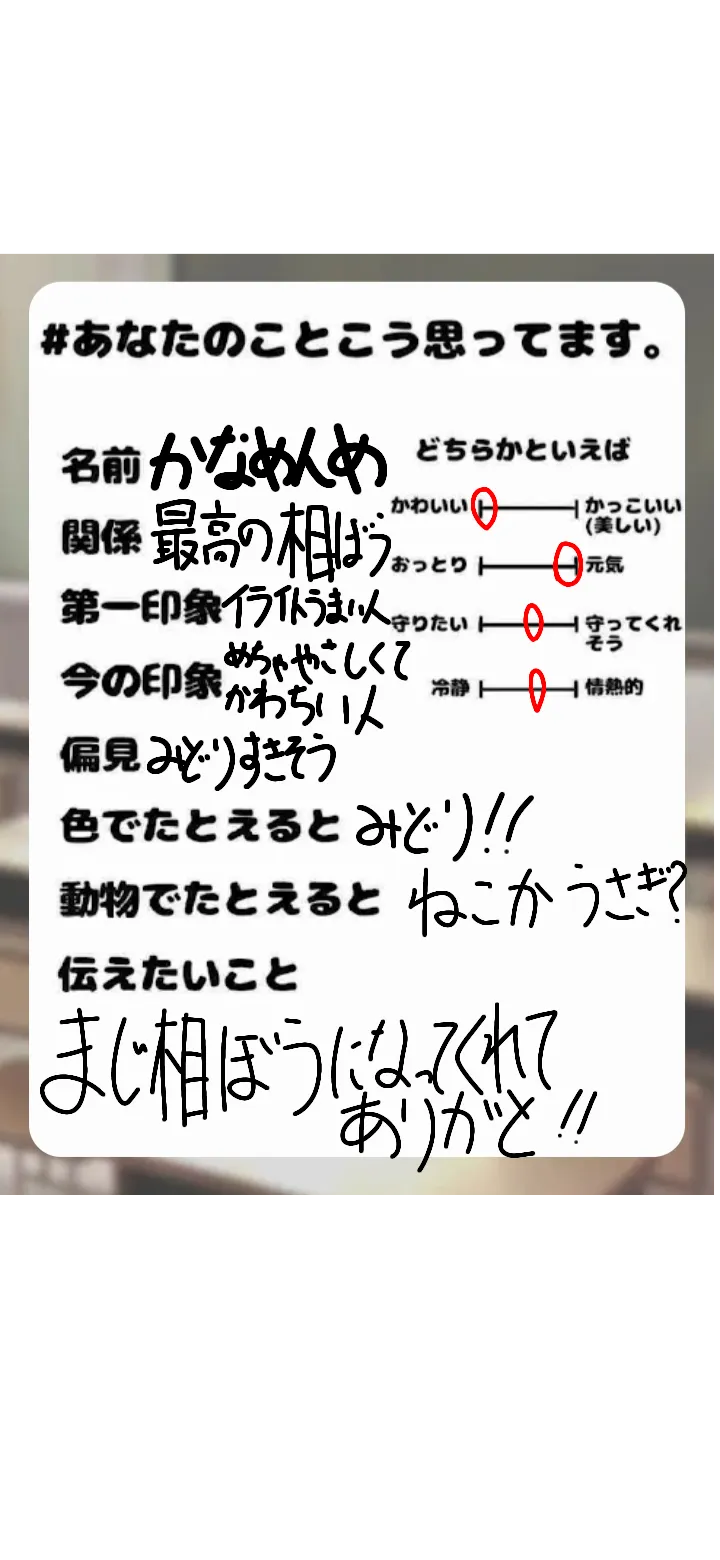 #あなたのことこう思ってます。
名前 かなめんめ
関係 最高の相ぼう
第一印象 イライトうまい人
今の印象 めちゃやさしくて
かわちいい人
偏見 みどりすきそう
どちらかといえば
かわいい かっこいい
(美しい)
おっとり 元気
守りたい 守ってくれ
そう
冷静 情熱的
色でたとえると みどり!!
動物でたとえると ねこか うさぎ?
伝えたいこと
まじ相ぼうになってくれて
ありがと!!